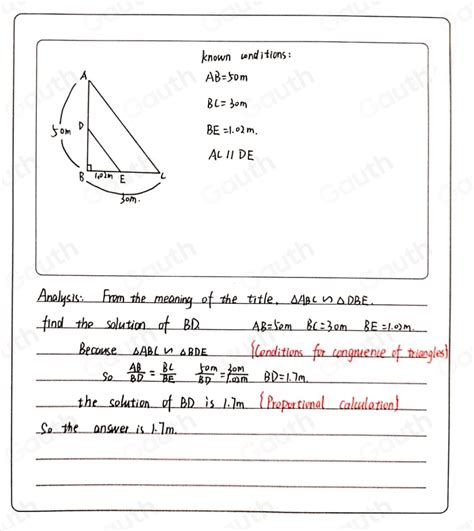 known conditions:
AB=50m
BC=30m
BE=1.02m.
AC // DE
A
50m
D
B
1.02m
E
C
30m.
Analysis: From the meaning of the title, △ABC ∽ △DBE.
find the solution of BD. AB=50m BC=30m BE=1.02m.
Because △ABC ∽ △BDE {Conditions for congruence of triangles}
So AB/BD = BC/BE 50m/BD = 30m/1.02m BD=1.7m.
the solution of BD is 1.7m {Proportional calculation}
So the answer is 1.7m.
Gauth